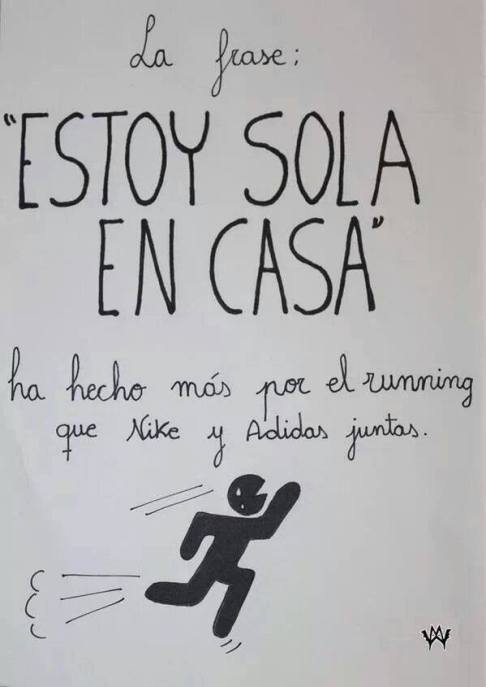 La frase:
"ESTOY SOLA
EN CASA"
ha hecho más por el running
que Nike y Adidas juntas.